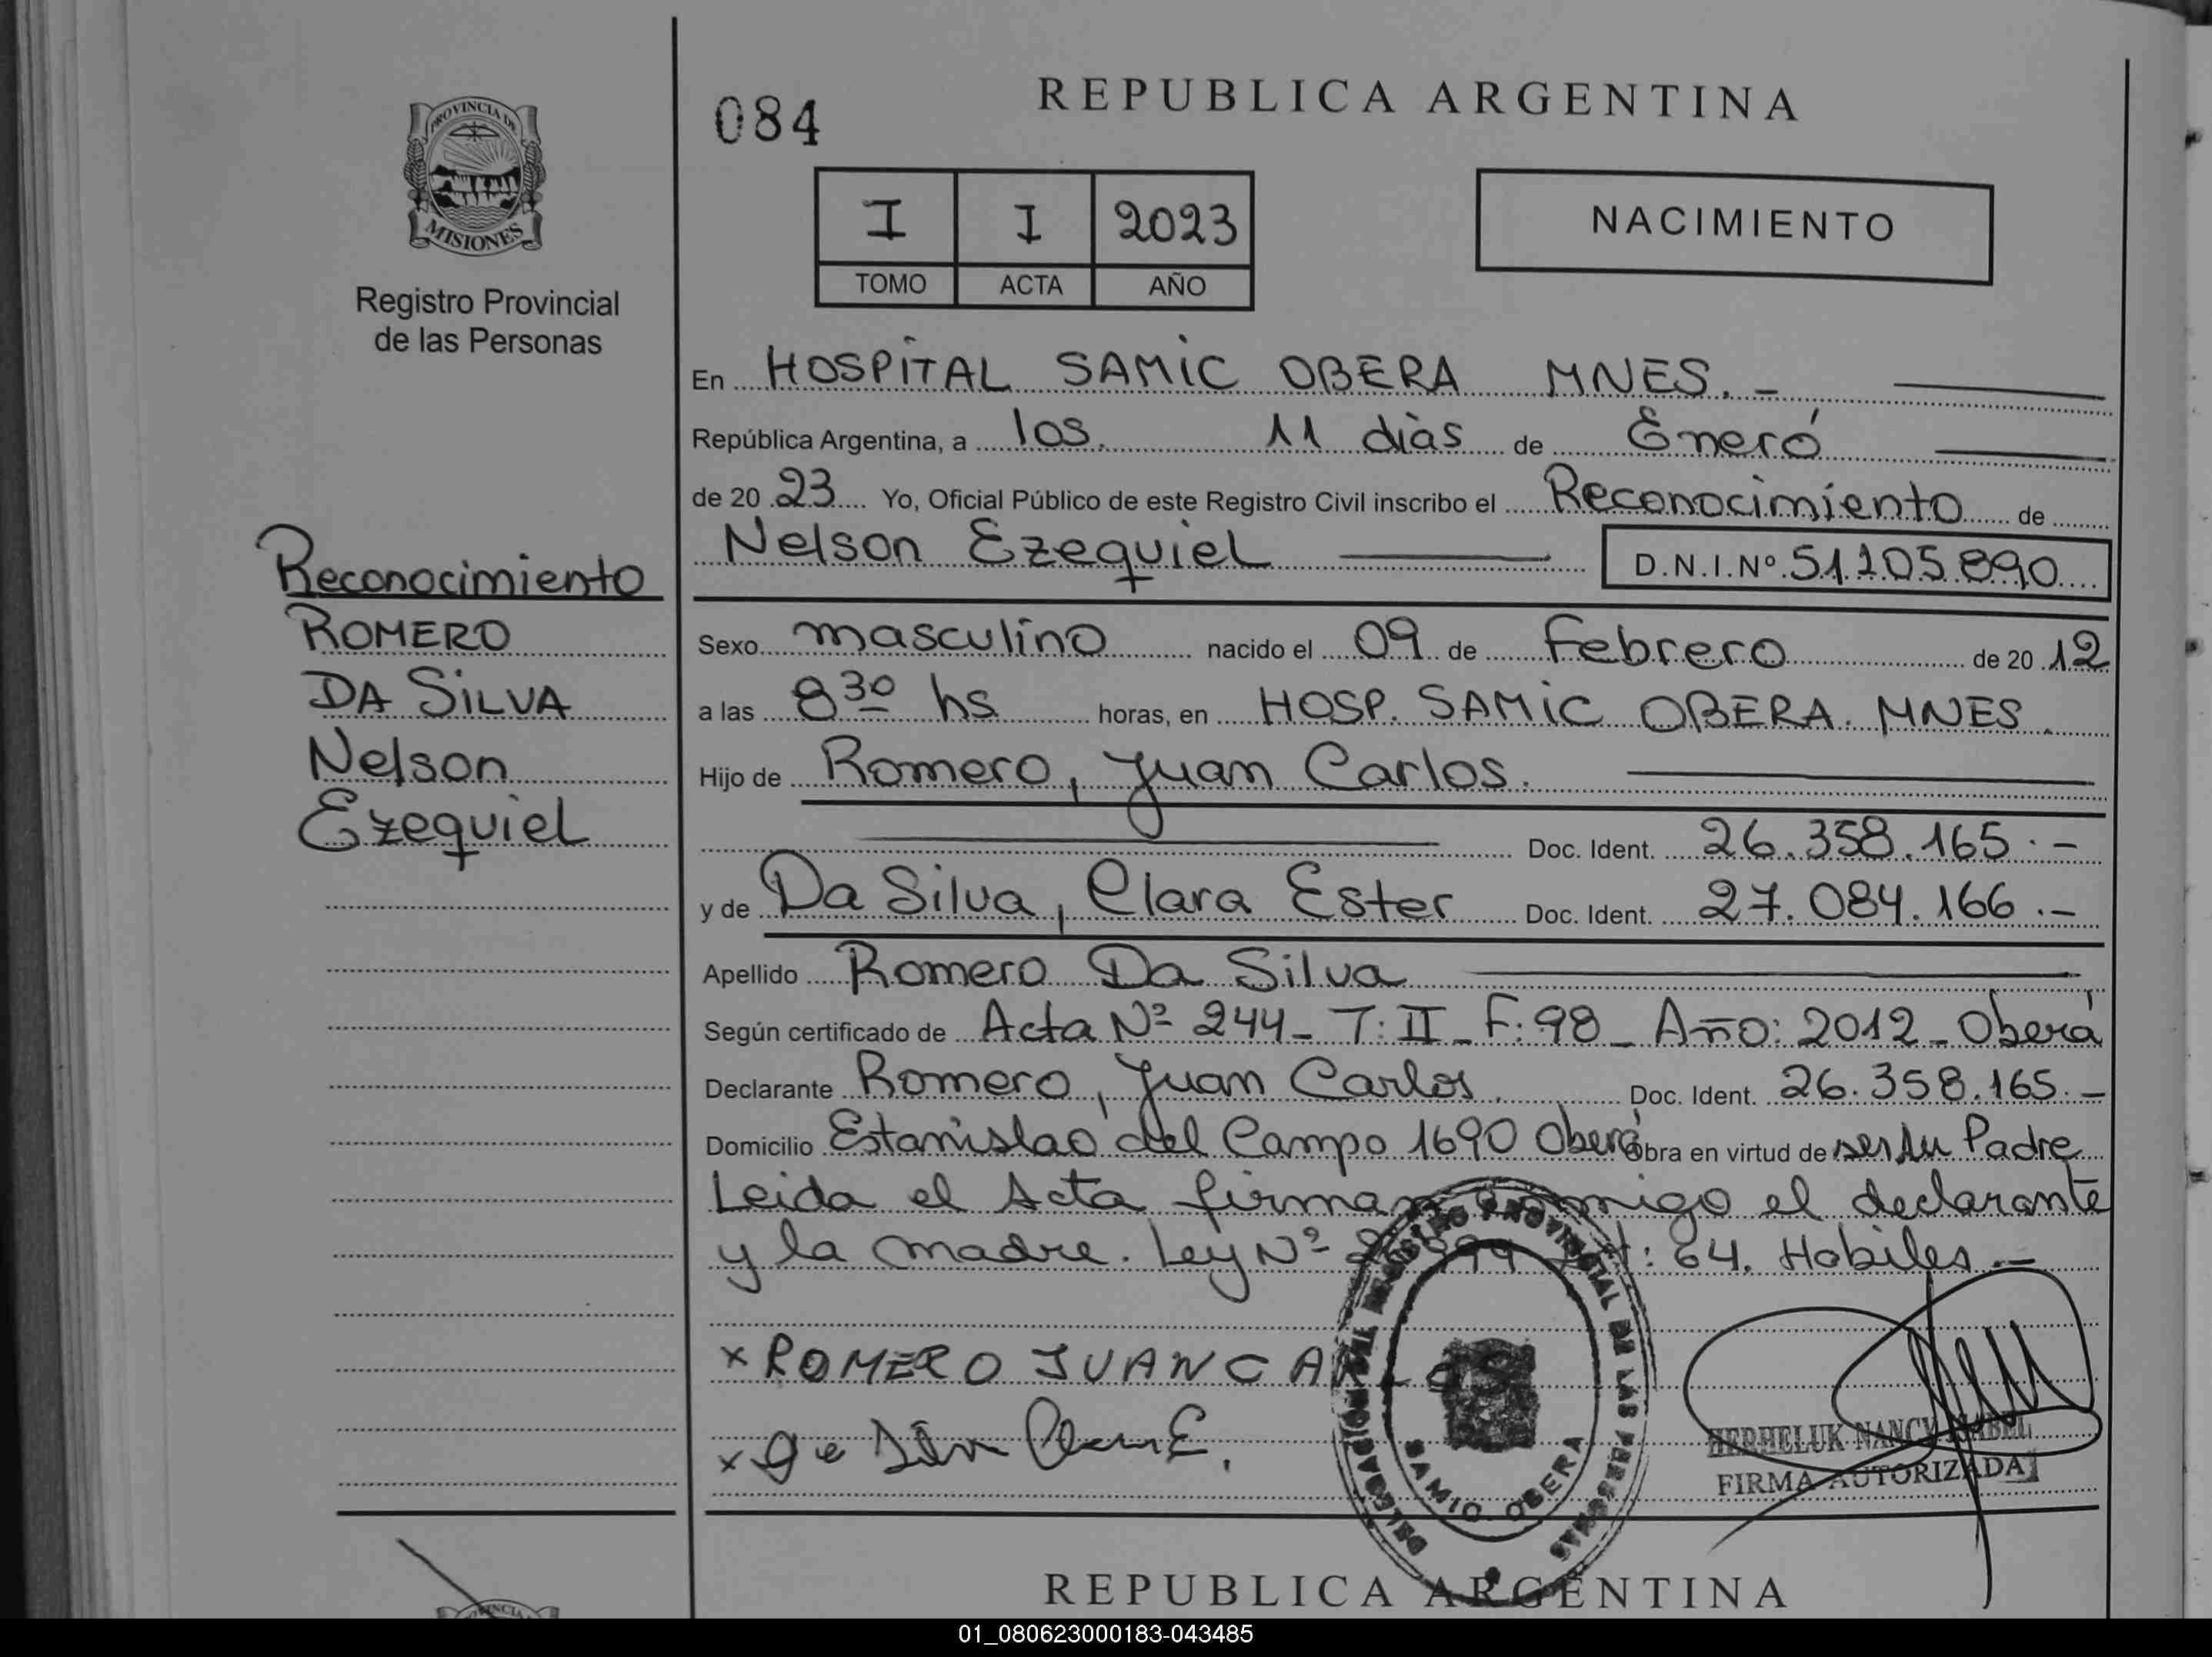 PROVINCIA DE
MISIONES
Registro Provincial
de las Personas
Reconocimiento
ROMERO
DA SILVA
Nelson
Ezequiel
084
REPUBLICA ARGENTINA
I I 2023
TOMO ACTA AÑO
NACIMIENTO
En HOSPITAL SAMIC OBERA MNES. -
República Argentina, a los. 11 dias de Eneró
de 20 23 Yo, Oficial Público de este Registro Civil inscribo el Reconocimiento de
Nelson Ezequiel D.N.I.Nº 51.205.890
Sexo masculino nacido el 09 de Febrero de 20 12
a las 8 30 hs horas, en HOSP. SAMIC OBERA. MNES.
Hijo de Romero, Juan Carlos.
Doc. Ident. 26.358.165.-
y de Da Silva, Clara Ester Doc. Ident. 27.084.166.-
Apellido Romero Da Silva
Según certificado de Acta Nº 244- T: II - F: 98 - Año: 2012 - Oberá
Declarante Romero, Juan Carlos. Doc. Ident. 26.358.165.-
Domicilio Estanislao del Campo 1690 Oberá Obra en virtud de ser su Padre
Leida el Acta firman conmigo el declarante
y la madre. Ley Nº : 64. Habiles.-
x ROMERO JUAN CARLOS
x
DELEGACION REGISTRO PROVINCIAL DE LAS PERSONAS
SAMIC OBERA
NANCY ISABEL
FIRMA AUTORIZADA
REPUBLICA ARGENTINA
01_080623000183-043485